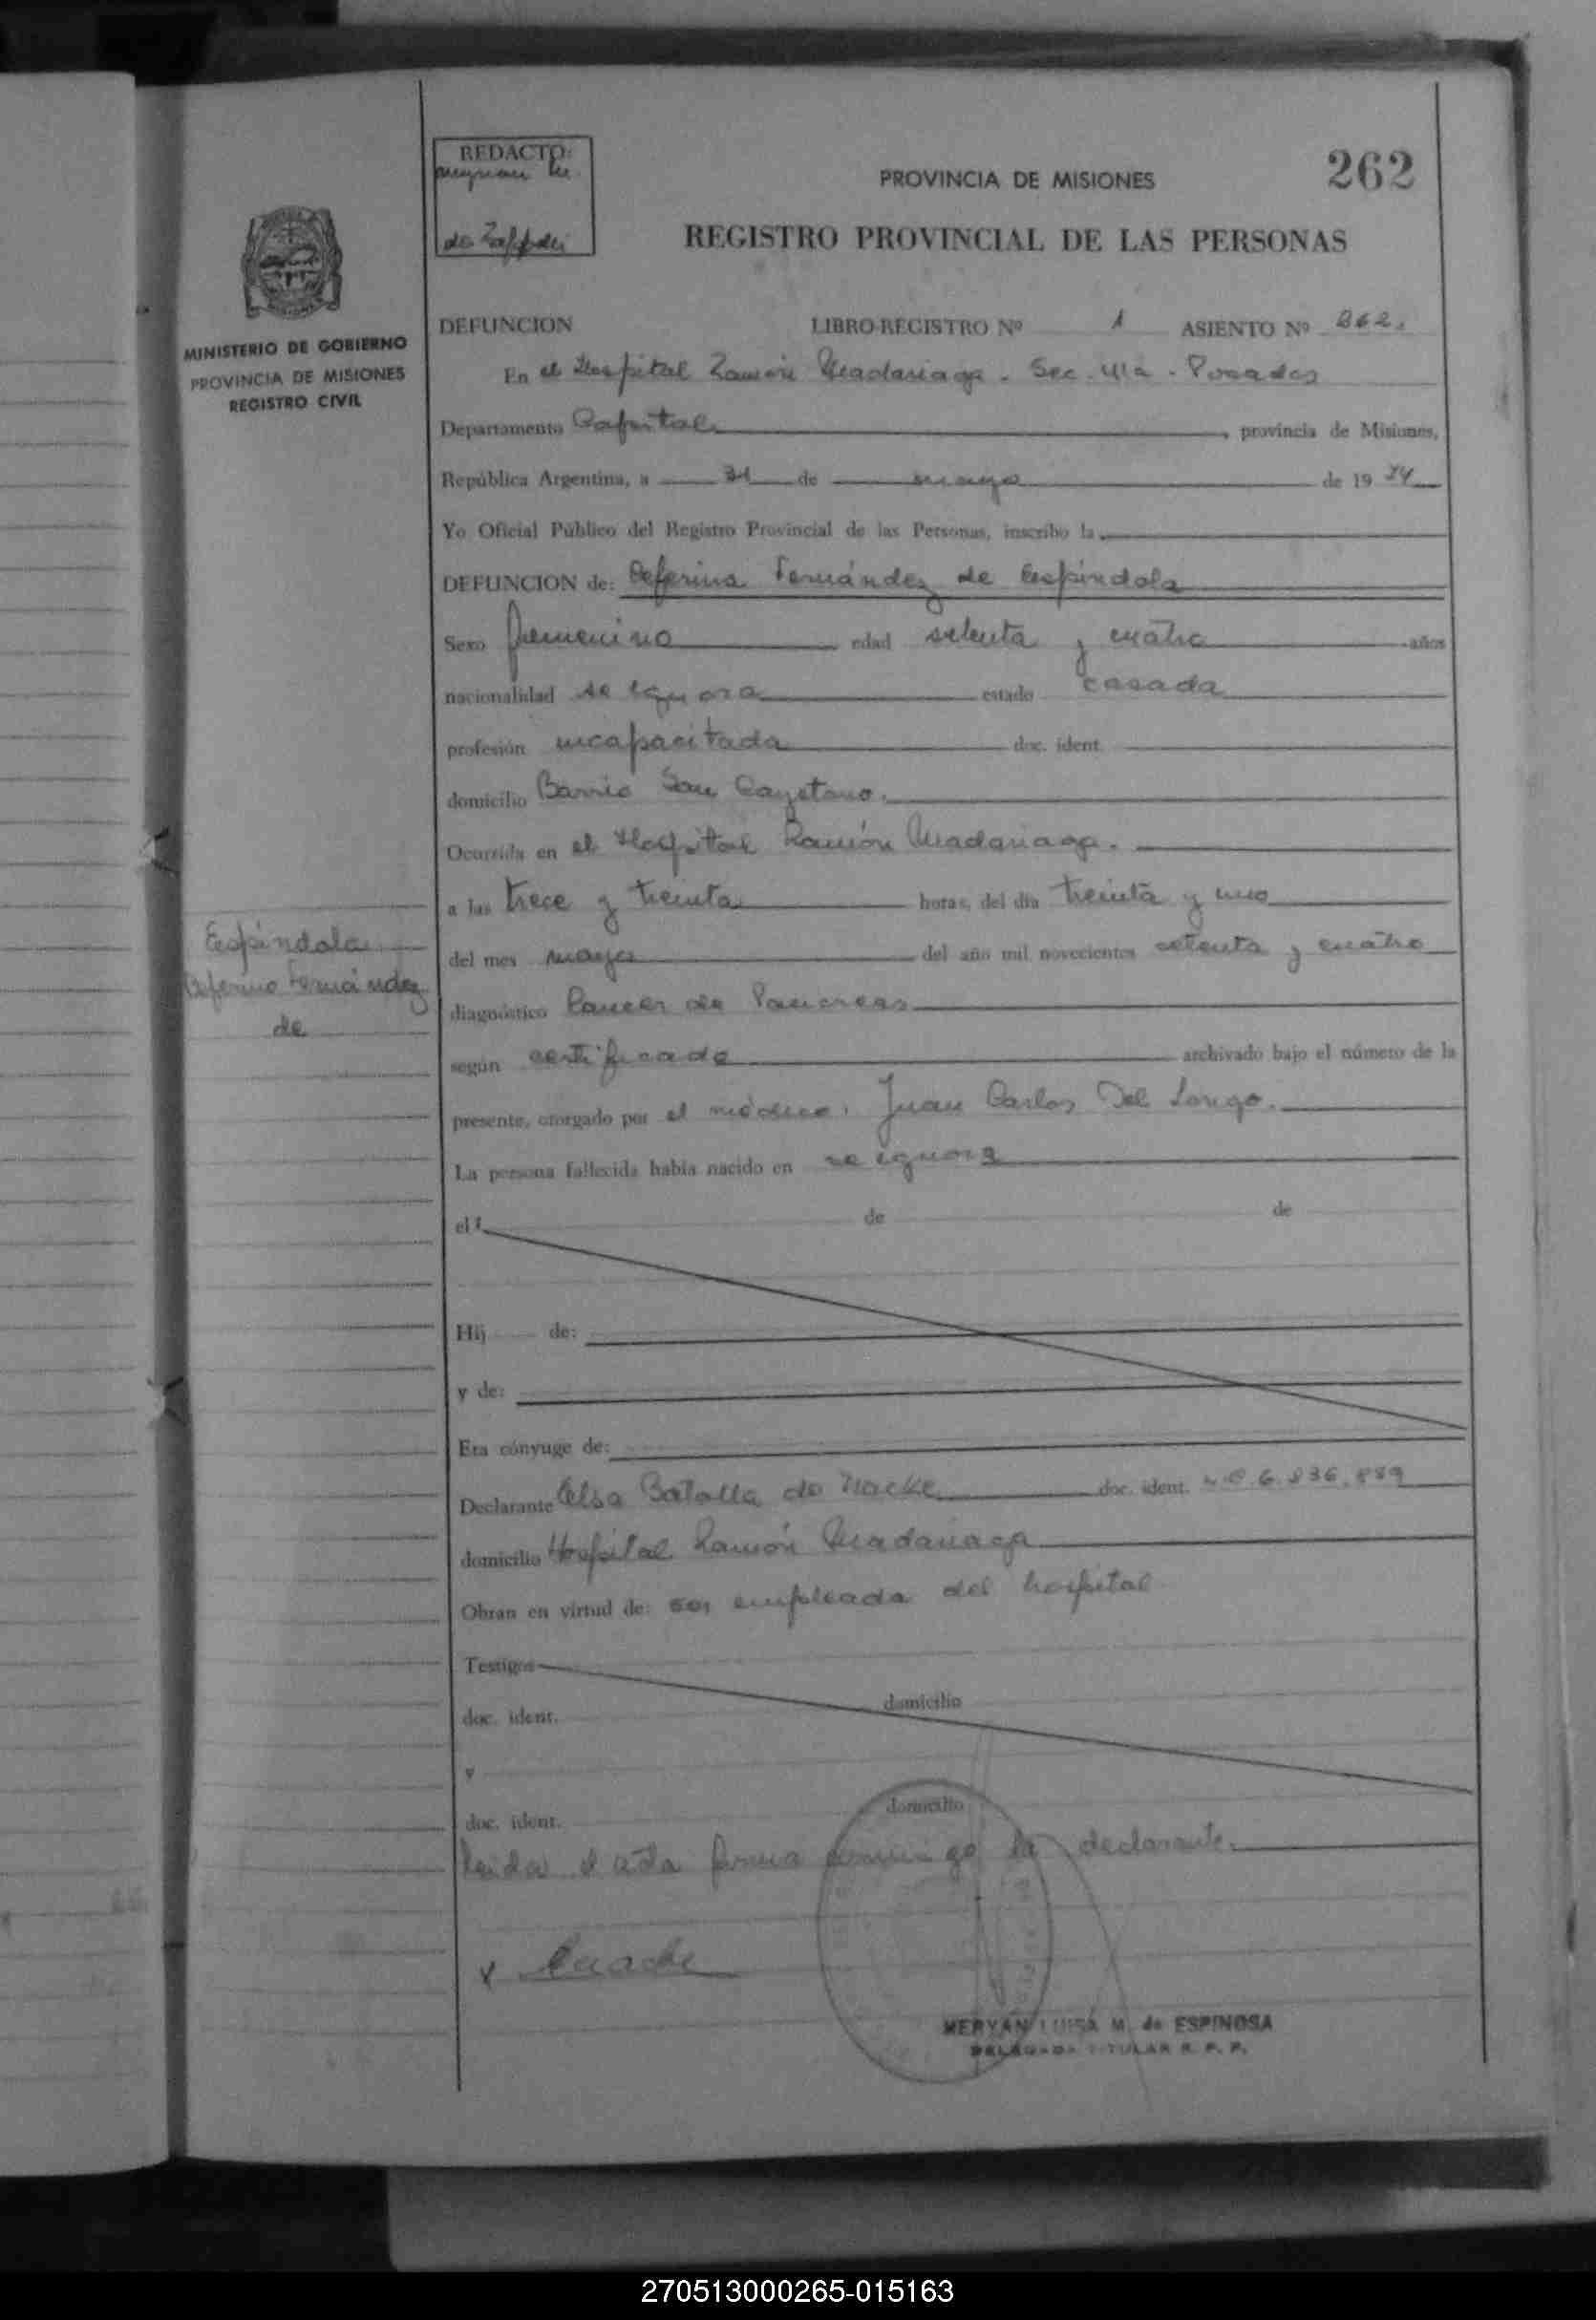 REDACTO:
262
PROVINCIA DE MISIONES
REGISTRO PROVINCIAL DE LAS PERSONAS
MINISTERIO DE GOBIERNO
PROVINCIA DE MISIONES
REGISTRO CIVIL
DEFUNCION LIBRO-REGISTRO Nº 1 ASIENTO Nº 262.
En el Hospital Ramón Madariaga - Sec. 4ta - Posadas
Departamento Capital, provincia de Misiones,
República Argentina, a 31 de mayo de 19 74
Yo Oficial Público del Registro Provincial de las Personas, inscribo la
DEFUNCION de: Ceferina Fernández de Espíndola
Sexo femenino edad setenta y cuatro años
nacionalidad se ignora estado casada
profesión incapacitada doc. ident.
domicilio Barrio San Cayetano.
Ocurrida en el Hospital Ramón Madariaga.
a las trece y treinta horas, del día treinta y uno
del mes mayo del año mil novecientos setenta y cuatro
Espíndola
Ceferina Fernández
de
diagnóstico Cancer de Pancreas
según certificado archivado bajo el número de la
presente, otorgado por el médico: Juan Carlos Del Longo.
La persona fallecida había nacido en se ignora
el de de
Hij de:
y de:
Era cónyuge de:
Declarante Elsa Batalla de Macke doc. ident. 6.836.889
domicilio Hospital Ramón Madariaga
Obran en virtud de: ser empleada del hospital
Testigos
doc. ident. domicilio
y
doc. ident. domicilio
Leida el acta firma conmigo la declarante.
MERYAN LUISA M. de ESPINOSA
DELEGADA TITULAR R. P. P.
270513000265-015163